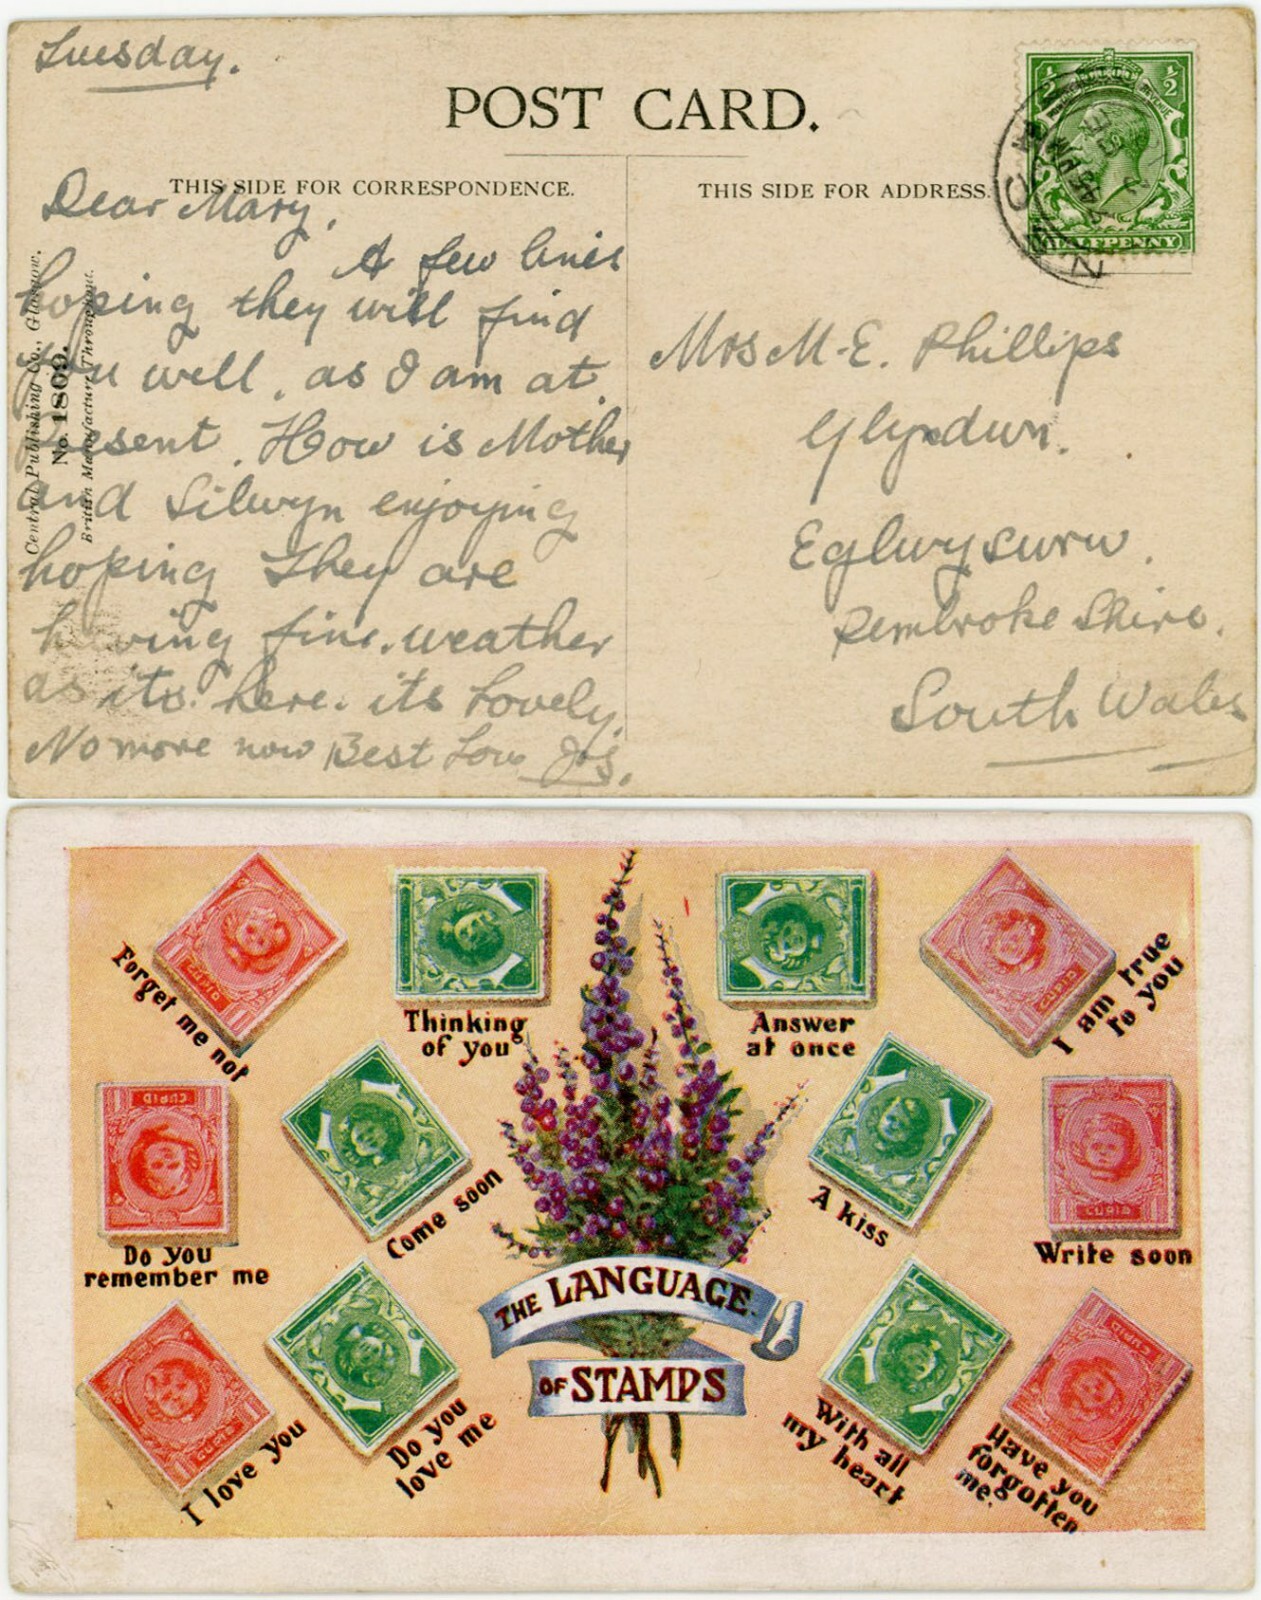 Tuesday.
POST CARD.
THIS SIDE FOR CORRESPONDENCE.
THIS SIDE FOR ADDRESS.
Dear Mary,
A few lines
hoping they will find
you well, as I am at
Present. How is Mother
and Silwyn enjoying
hoping They are
having fine weather
as its here. its Lovely.
No more now Best Love Jas.
Central Publishing Co., Glasgow.
No. 1809.
British Manufacture Throughout.
½ ½
HALFPENNY
Mrs M-E. Phillips
Glyndwn.
Eglwyswrw.
Pembroke Shire.
South Wales
Forget me not
Thinking
of you
Answer
at once
I am true
to you
Do you
remember me
Come soon
A kiss
Write soon
THE LANGUAGE
OF STAMPS
I love you
Do you
love me
With all
my heart
Have you
forgotten
me.
CUPID
CUPID
CUPID
CUPID
CUPID
CUPID